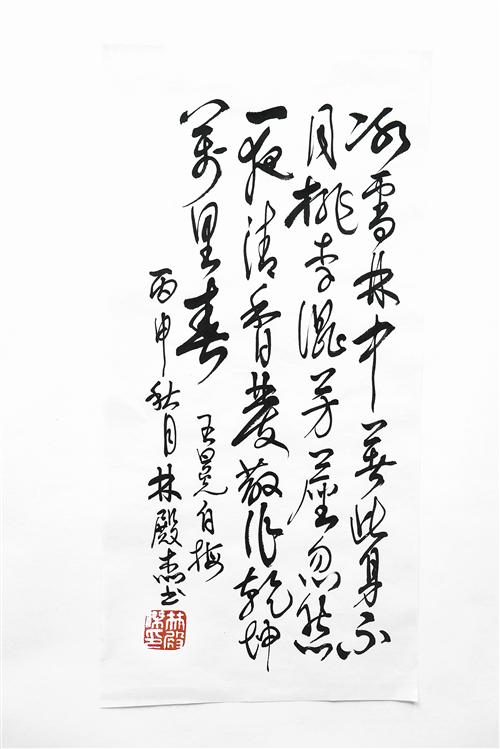 冰雪林中著此身不
同桃李混芳塵忽然
一夜清香發散作乾坤
萬里春
王冕白梅
丙申秋月林殿杰书
林殿傑印